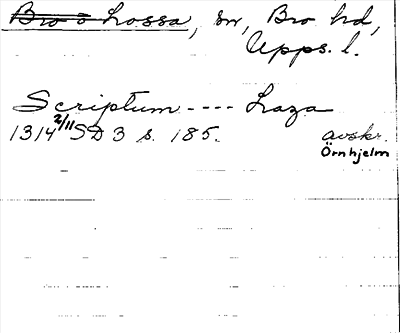 Bro o Lossa, sn, Bro hd,
Upps. l.
Scriptum ---- Laza
1314 2/11 SD 3 s. 185.
avskr.
Örnhjelm